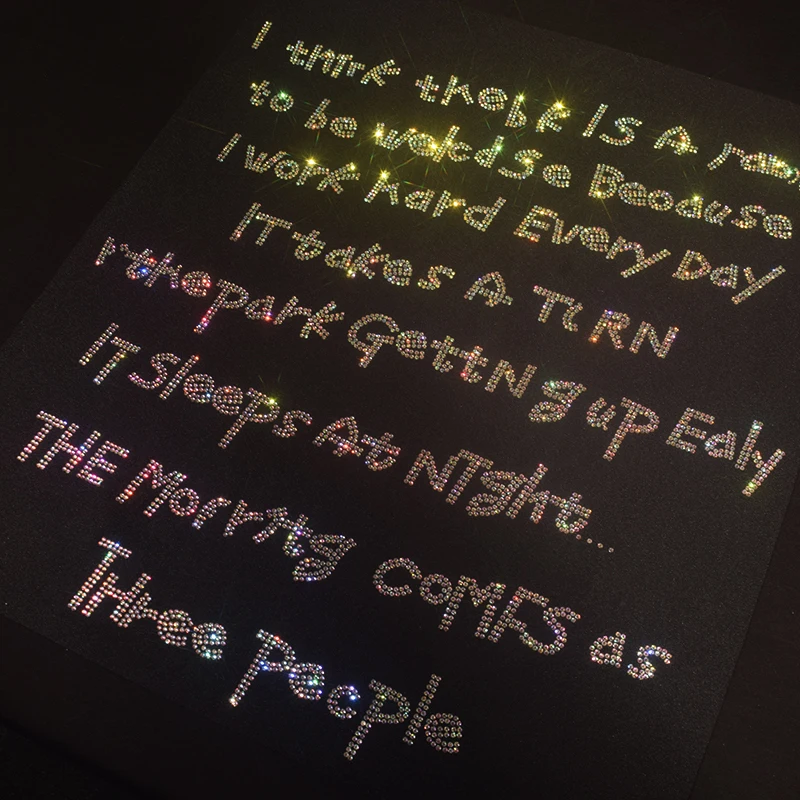 I think there IS A
to be wakdse Beoduse
I work Hard Every Day
IT takes A TURN
the park GettNg up Ealy
IT Sleeps At NIght...
THE Mornitg COMES as
THree People